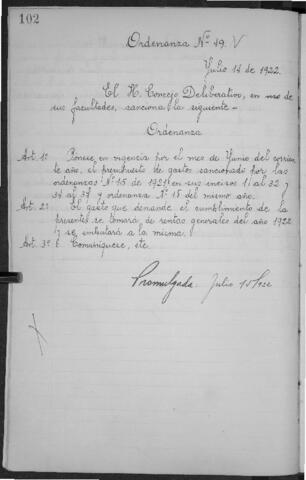 102
Ordenanza Nº 19. V
Julio 14 de 1922.
El H. Concejo Deliberativo, en uso de
sus facultades, sanciona la siguiente -
Ordenanza
Art. 1º Pónese en vigencia por el mes de Junio del corrien
te año, el presupuesto de gastos sancionado por las
ordenanzas Nº 15 de 1921 en sus incisos 1 al 32 y
34 al 37 y ordenanza Nº 18 del mismo año.
Art. 2º El gasto que demande el cumplimiento de la
presente se tomará de rentas generales del año 1922
y se imputará a la misma.
Art. 3º Comuníquese, etc.
Promulgada. Julio 15/922